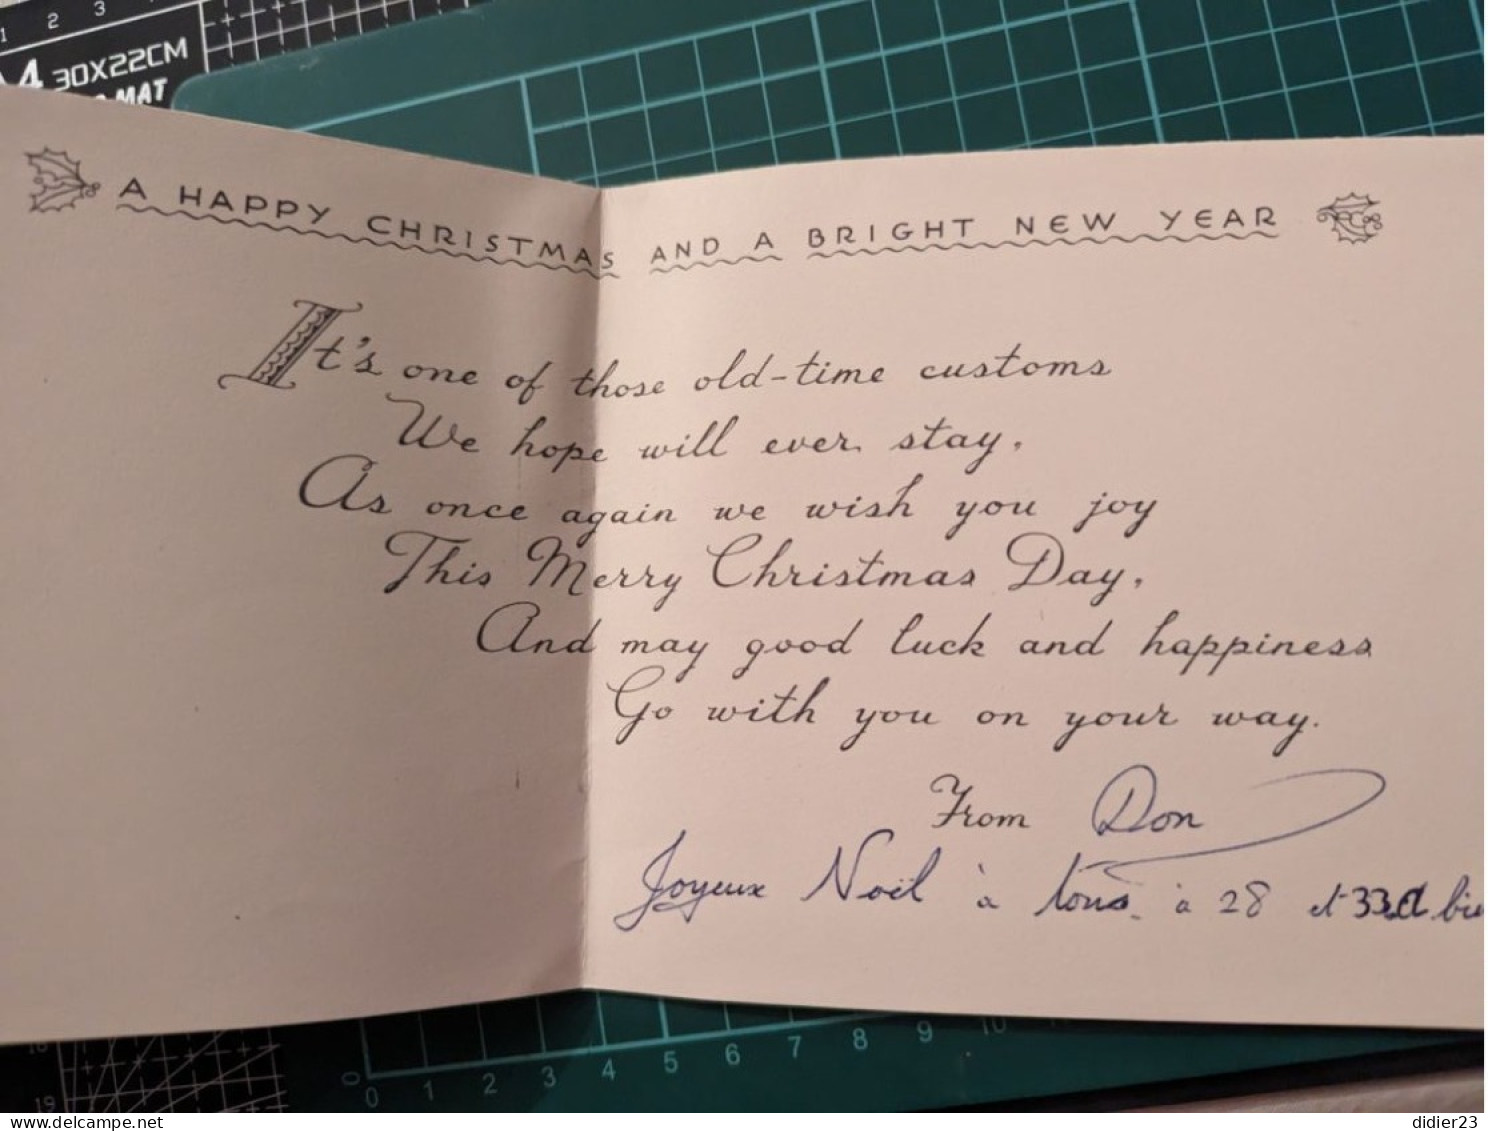 1 2 3
A4 30X22CM
MAT
A HAPPY CHRISTMAS AND A BRIGHT NEW YEAR
It's one of those old-time customs
We hope will ever stay,
As once again we wish you joy
This Merry Christmas Day,
And may good luck and happiness
Go with you on your way.
From Don
Joyeux Noël à tous à 28 et 33
0 0 1 2 3 4 5 6 7 8 9 10
19
www.delcampe.net
didier23